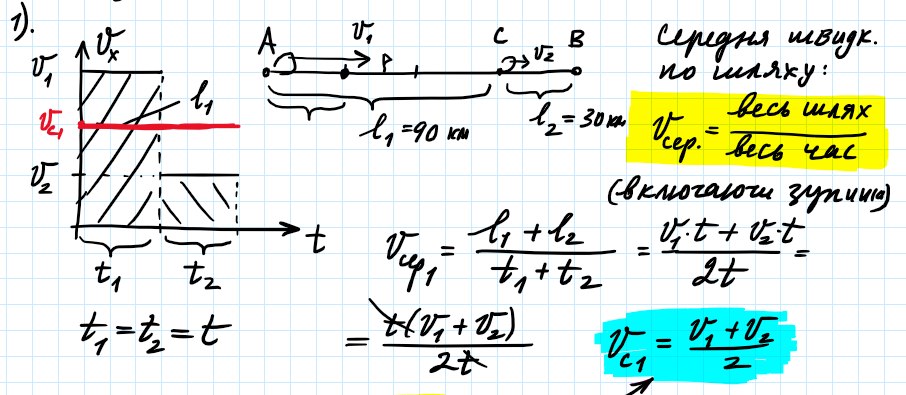 1).
V₁
Vₓ
V_c₁
V₂
l₁
t₁ t₂
t
t₁ = t₂ = t
A V₁ P C V₂ B
l₁ = 90 км l₂ = 30 км
Середня швидк.
по шляху:
Vсер. = весь шлях / весь час
(включаючи зупинки)
Vсер₁ = (l₁ + l₂) / (t₁ + t₂) = (V₁·t + V₂·t) / 2t =
= t(V₁ + V₂) / 2t
V_c₁ = (V₁ + V₂) / 2